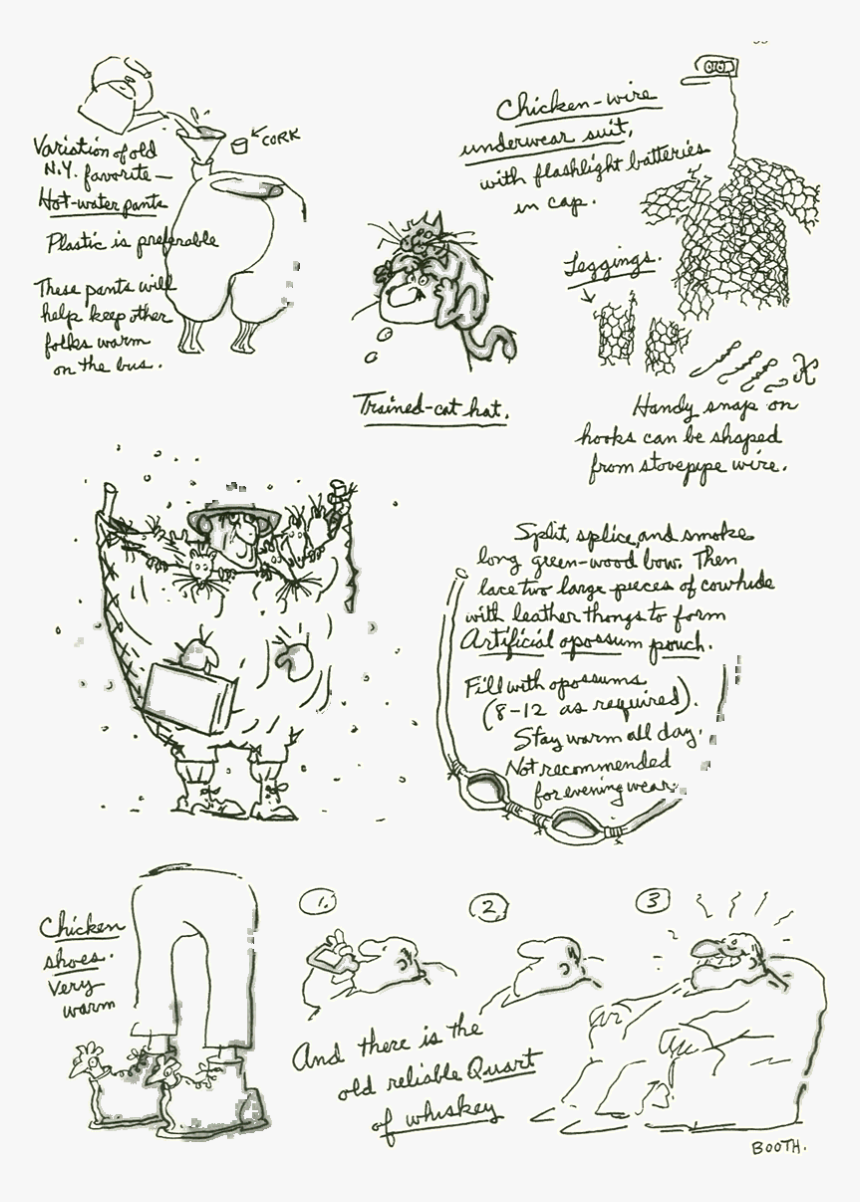 CORK
Variation of old
N.Y. favorite—
Hot-water pants
Plastic is preferable
These pants will
help keep other
folks warm
on the bus.
Trained-cat hat.
Chicken-wire
underwear suit,
with flashlight batteries
in cap.
Leggings.
Handy snap on
hooks can be shaped
from stovepipe wire.
Split, splice, and smoke
long green-wood bow. Then
lace two large pieces of cowhide
with leather thongs to form
Artificial opossum pouch.
Fill with opossums
(8-12 as required).
Stay warm all day.
Not recommended
for evening wear.
Chicken
shoes.
Very
warm
1.
2.
3
And there is the
old reliable Quart
of whiskey
BOOTH.